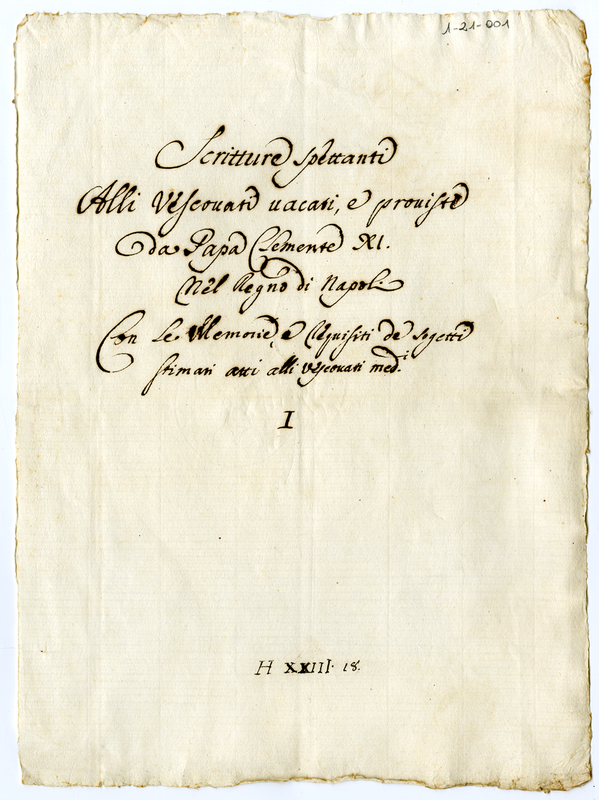 1-21-001
Scritture spettanti
Alli Vescovati vacati, e provisti
da Papa Clemente XI.
Nel Regno di Napoli
Con le Memorie, e Requisiti de sogetti
stimati atti alli Vescovati med.i
I
H XXIII. 18.